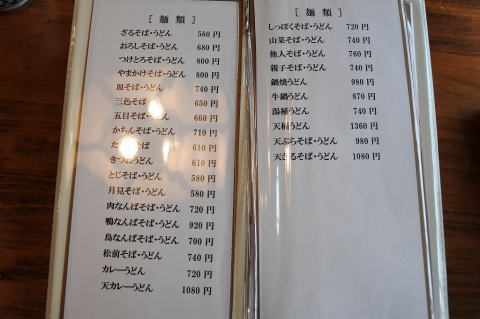 ［麺類］
ざるそば・うどん 580 円
おろしそば・うどん 680 円
つけとろそば・うどん 800 円
やまかけそば・うどん 800 円
皿そば・うどん 740 円
三色そば 650 円
五目そば・うどん 660 円
かちんそば・うどん 710 円
そば 610 円
きつねうどん 610 円
とじそば・うどん 580 円
月見そば・うどん 580 円
肉なんばそば・うどん 720 円
鴨なんばそば・うどん 920 円
鳥なんばそば・うどん 700 円
松前そば・うどん 740 円
カレーうどん 720 円
天カレーうどん 1080 円
［麺類］
しっぽくそば・うどん 720 円
山菜そば・うどん 740 円
他人そば・うどん 760 円
親子そば・うどん 740 円
鍋焼うどん 980 円
牛鍋うどん 870 円
湯桶うどん 740 円
天桶うどん 1360 円
天ぷらそば・うどん 980 円
天ざるそば・うどん 1080 円